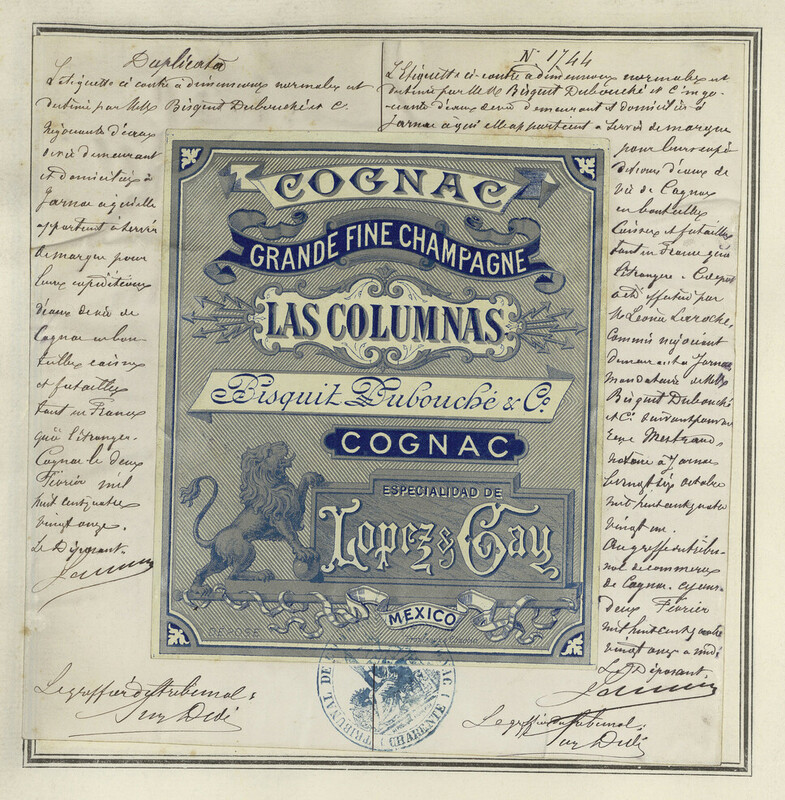 Duplicata
L'étiquette ci contre à dimensions normales est
destinée par MM. Bisquit Dubouché et C.
négociants d'eaux
de vie demeurant
et domiciliés à
Jarnac à qui elle
appartient à servir
de marque pour
leurs expéditions
d'eaux de vie de
Cognac en bou-
teilles caisses
et futailles
tant en France
qu'à l'étranger.
Cognac le deux
Février mil
huit cent quatre
vingt onze.
Le Déposant.
Le greffier du tribunal:
N. 1744
L'Etiquette ci-contre à dimensions normales est
destinée par MM. Bisquit Dubouché et C. négo-
ciants d'eaux de vie demeurant et domiciliés à
Jarnac à qui elle appartient à servir de marque
pour leurs expé-
ditions d'eaux de
vie de Cognac
en bouteilles
caisses et futailles
tant en France qu'à
l'étranger. Ce dépôt
a été effectué par
M. Léonce Laroche,
Commis négociant
demeurant à Jarnac
mandataire de MM.
Bisquit Dubouché
et C. suivant pouvoir
notaire à Jarnac
le vingt six octobre
mil huit cent quatre
vingt un.
Au greffe du tribu-
nal de commerce
de Cognac, ce jour
deux Février
mil huit cent quatre
vingt onze à midi
Le Déposant.
Le greffier du tribunal:
COGNAC
GRANDE FINE CHAMPAGNE
LAS COLUMNAS.
Bisquit Dubouché & Co.
COGNAC
ESPECIALIDAD DE
Lopez & Gay
MEXICO
TRIBUNAL DE
(CHARENTE)